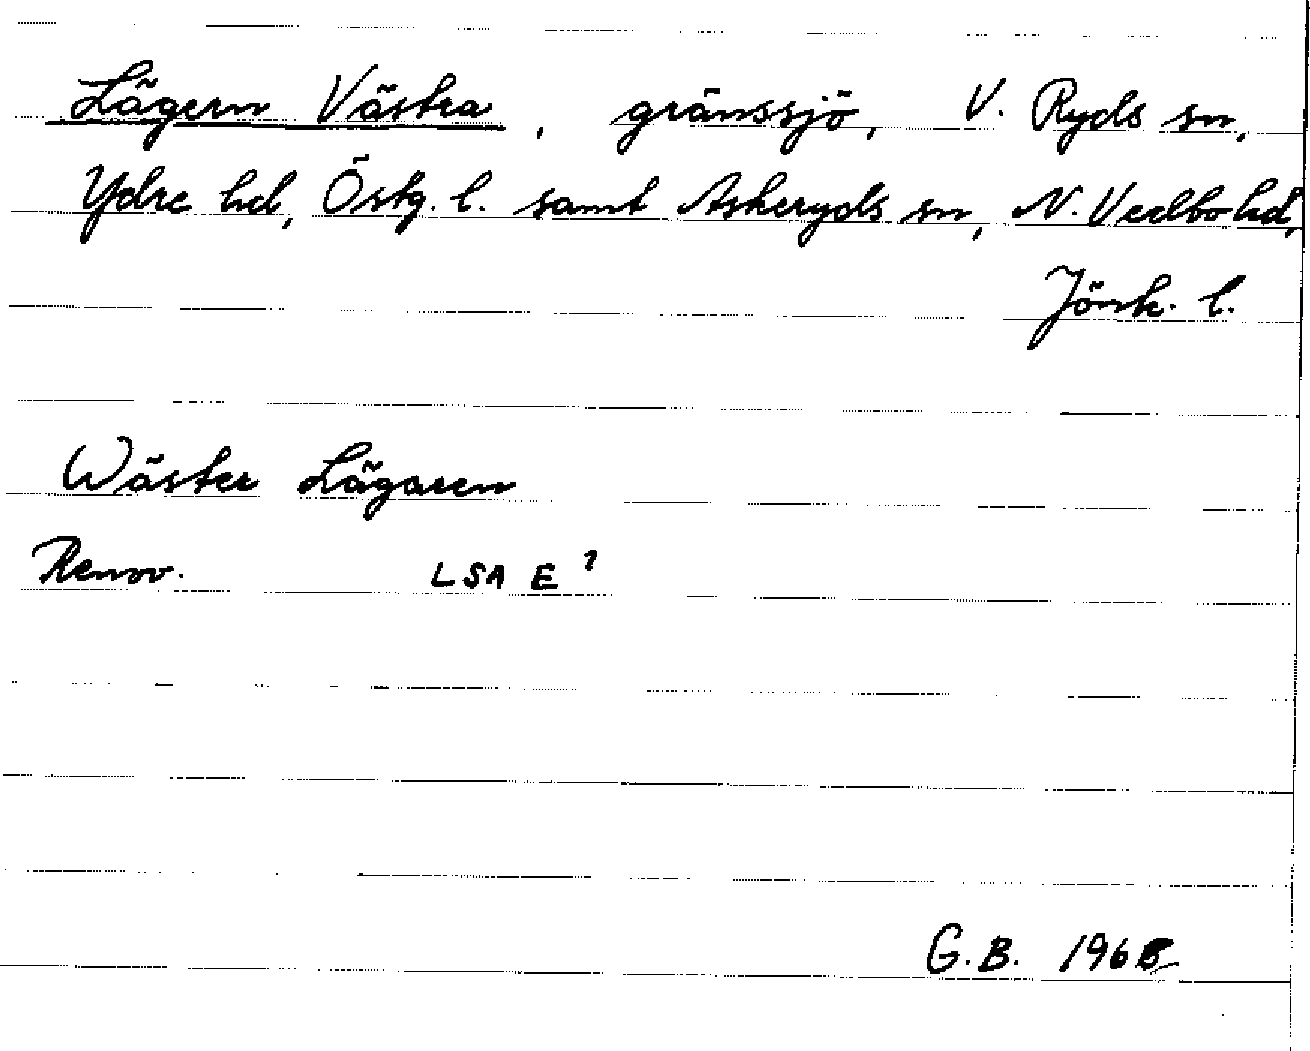 Lägern Västra, gränssjö, V. Ryds sn,
Ydre hd, Östg. l. samt Askeryds sn, N. Vedbo hd,
Jönk. l.
Wäster Lägaren
Renov. LSA E 1
G.B. 1968